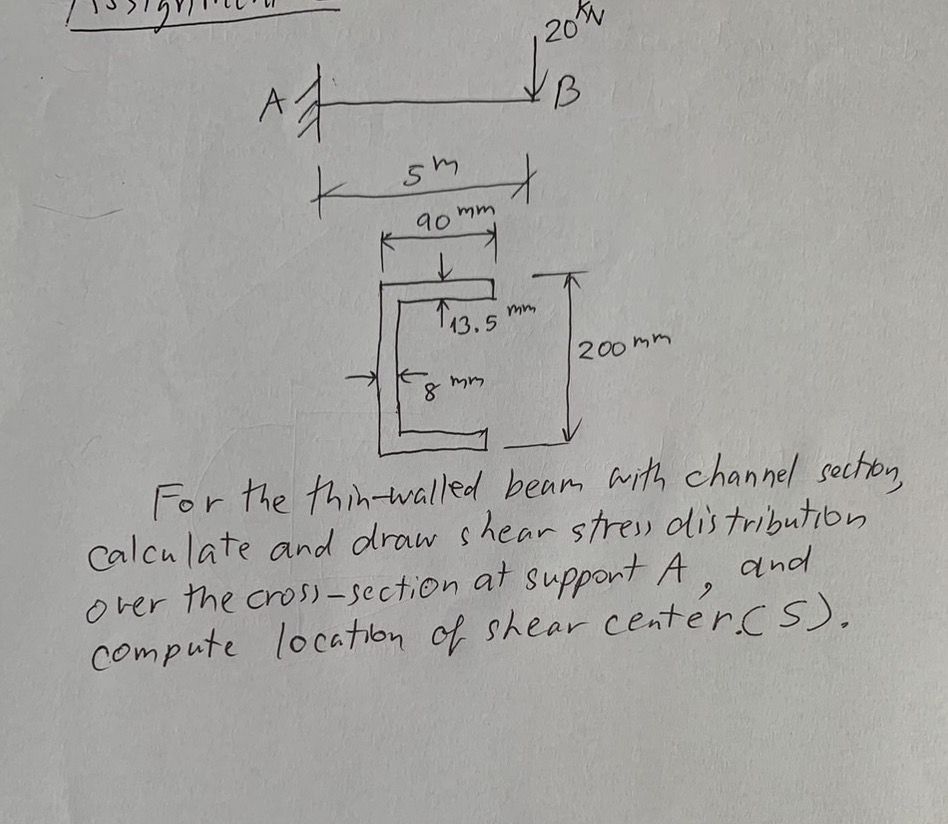 Assignment
20 kN
A
B
5 m
90 mm
13.5 mm
200 mm
8 mm
For the thin-walled beam with channel section,
calculate and draw shear stress distribution
over the cross-section at support A, and
compute location of shear center.(S).